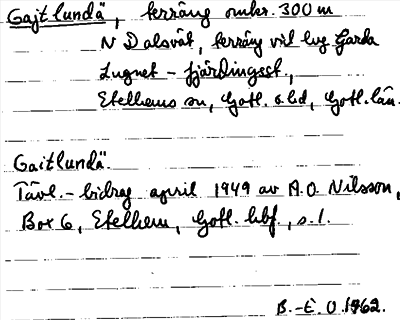 Gajtlundä, terräng omkr. 300 m
N Dalsvät, terräng vid lvg Garda
Lugnet - fjärdingsst,
Etelhems sn, Gotl. s. hd, Gotl. län.
Gaitlundä.
Tävl.-bidrag april 1949 av A.O. Nilsson,
Box 6, Etelhem, Gotl. hbf, s. 1.
B.-E. O. 1962.